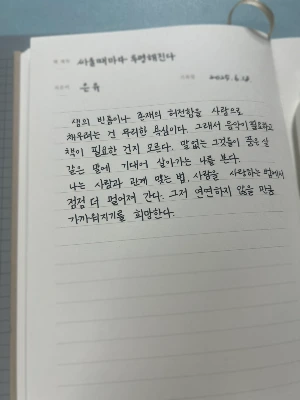 싸울때마다 투명해진다
은유
2025. 6. 12
생의 빈틈이나 존재의 허전함을 사람으로
채우려는 건 무리한 욕심이다. 그래서 음악이 필요하고
책이 필요한 건지 모른다. 말없는 그것들이 품은 살
같은 말에 기대어 살아가는 나를 본다.
나는 사람과 관계 맺는 법, 사람을 사랑하는 법에서
점점 더 멀어져 간다. 그저 연연하지 않을 만큼
가까워지기를 희망한다.